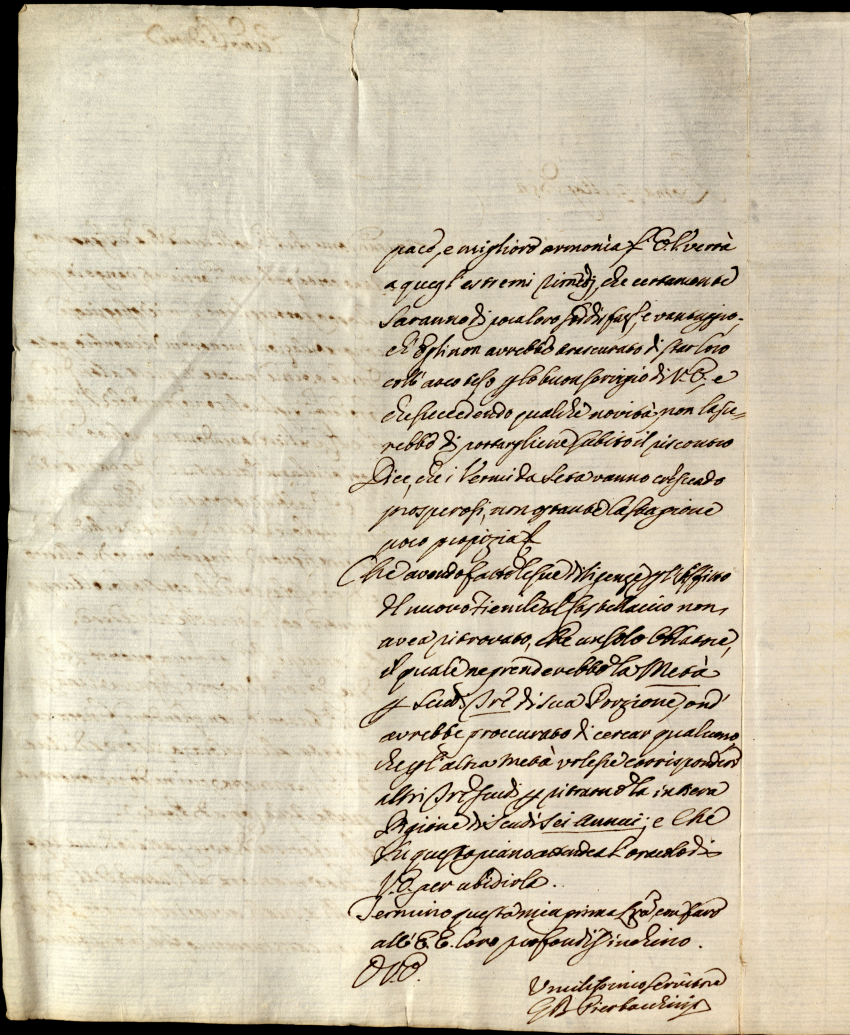 pace, e migliore armonia p E. V. verrà
a quegl'estremi rimedj, che certamente
saranno di poca loro soddisfaz.e, e vantaggio,
ch'Egli non avrebbe trascurato di star loro
coll'arco teso p lo buon servigio di V. E., e
che succedendo qualche novità non lasce-
rebbe di portargliene subito il riscontro
Dice, che i Vermi da Seta vanno crescendo
prosperosi, non ostante la stagione
poco propizia
Che avendo fatto le sue diligenze p l'affitto
del nuovo Fienile al Castellaccio non
avea ritrovato, che un solo Oblatore,
il quale ne prenderebbe la Metà
p Scudi Tre di sua Porzione, ond'
avrebbe proccurato di cercar qualcuno
che p l'altra Metà volesse corrispondere
altri Tre scudi p ritrarne la intera
Pigione di Scudi Sei annui; e che
in questo piano attendea l'oracolo di
V. E. per ubidirla.
Termino questa mia prima Lra con fare
all'E. E. loro profondiss.o inchino.
D V. E.
Umilissimo servitore
GB Pierbacchini